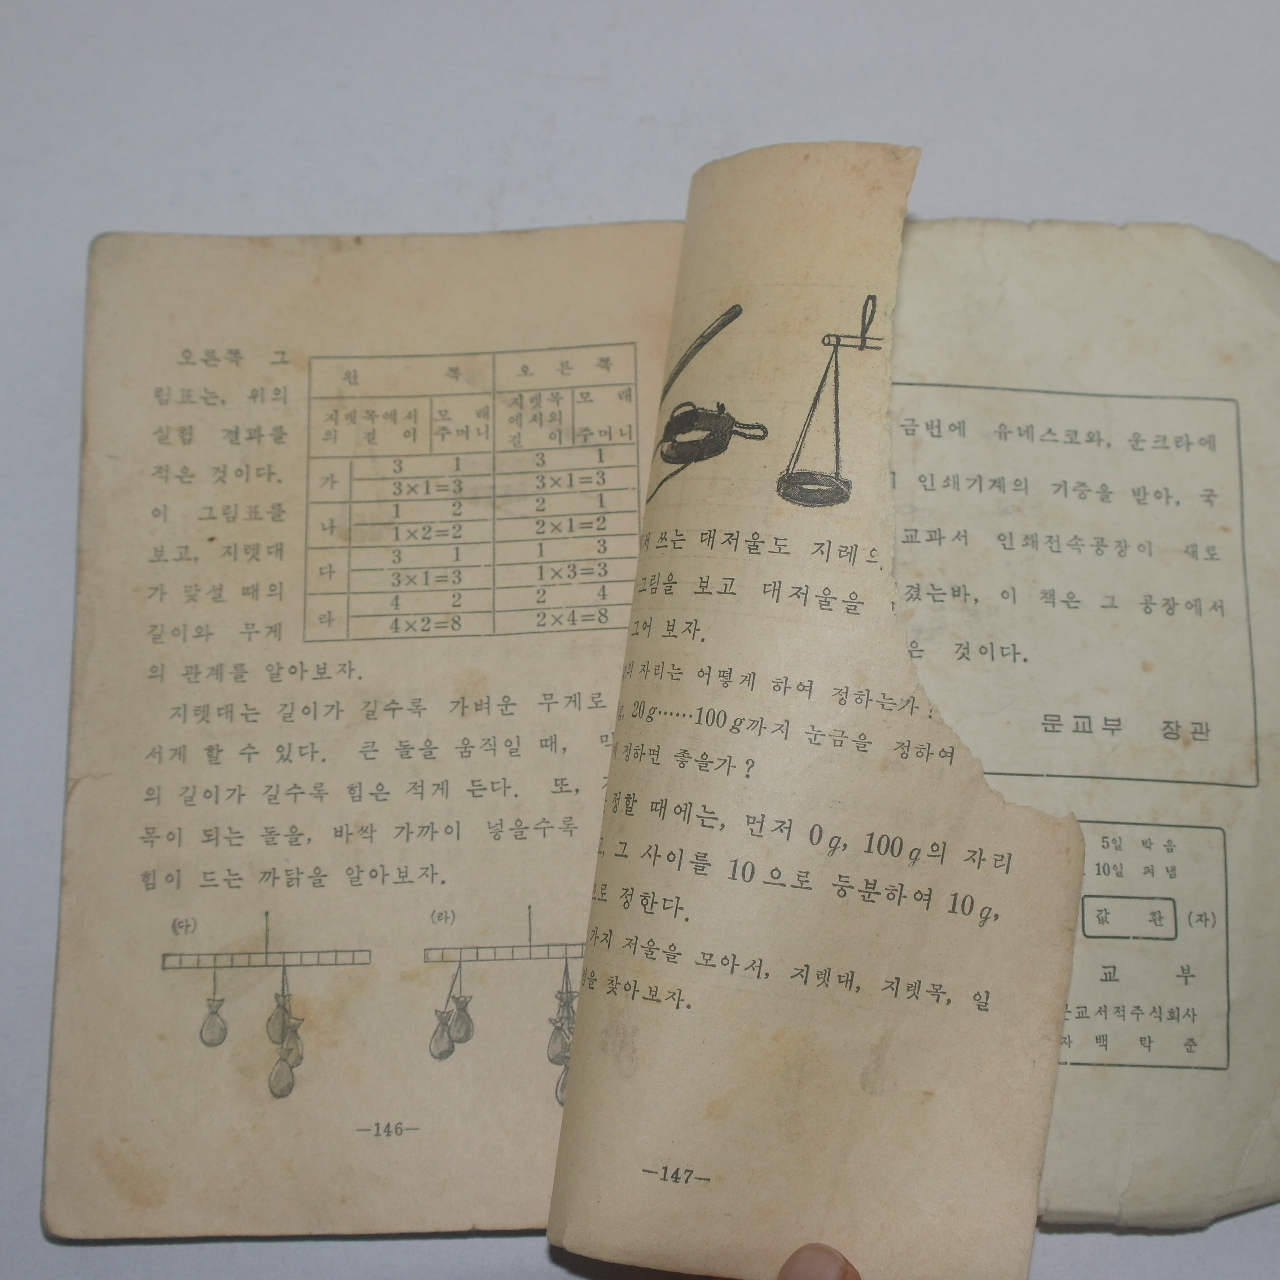 오른쪽 그
림표는, 위의
실험 결과를
적은 것이다.
이 그림표를
보고, 지렛대
가 맞설 때의
길이와 무게
의 관계를 알아보자.
왼 쪽 오 른 쪽
지렛목에서의 길이 모래주머니 지렛목에서의 길이 모래주머니
가 3 1 3 1
3×1=3 3×1=3
나 1 2 2 1
1×2=2 2×1=2
다 3 1 1 3
3×1=3 1×3=3
라 4 2 2 4
4×2=8 2×4=8
지렛대는 길이가 길수록 가벼운 무게로
서게 할 수 있다. 큰 돌을 움직일 때,
의 길이가 길수록 힘은 적게 든다. 또,
목이 되는 돌을, 바싹 가까이 넣을수록
힘이 드는 까닭을 알아보자.
(다) (라)
—146—
쓰는 대저울도 지레
그림을 보고 대저울을
그어 보자.
자리는 어떻게 하여 정하는가?
20g……100g까지 눈금을 정하여
정하면 좋을가?
정할 때에는, 먼저 0g, 100g의 자리
그 사이를 10으로 등분하여 10g,
정한다.
가지 저울을 모아서, 지렛대, 지렛목, 일
찾아보자.
—147—
금번에 유네스코와, 운크라에
인쇄기계의 기증을 받아, 국
교과서 인쇄전속공장이 새로
졌는바, 이 책은 그 공장에서
은 것이다.
문교부 장관
5일 박음
10일 펴냄
값 환 (자)
교 부
교서적주식회사
자 백 낙 준